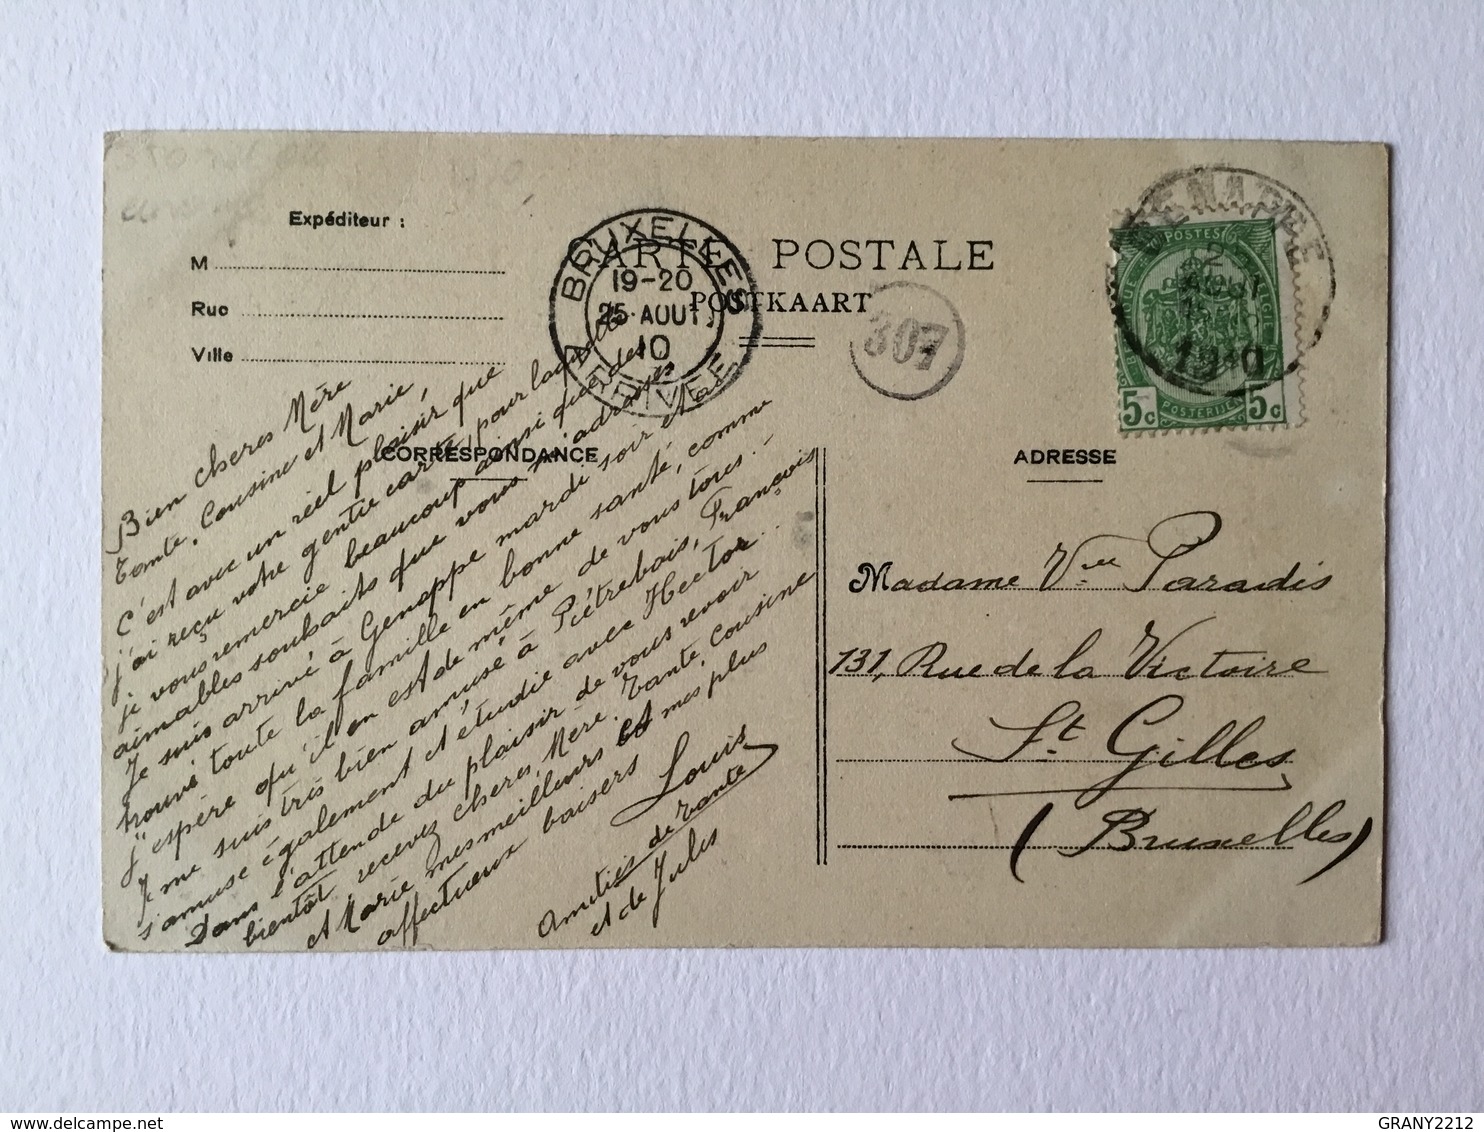 Expéditeur :
M
Rue
Ville
CARTE POSTALE
POSTKAART
BRUXELLES
19-20
25 AOUT
10
307
AOUT
1910
POSTES
5c POSTERIJEN 5c
CORRESPONDANCE
ADRESSE
Bien cheres Mère
Tante, Cousine et Marie,
C'est avec un réel plaisir que
j'ai reçu votre gentie carte, pour laquelle
je vous remercie beaucoup ainsi que des
aimables souhaits que vous m'adressez
Je suis arrivé à Genappe mardi soir et ai
trouvé toute la famille en bonne santé, comme
j'espère qu'il en est de même de vous tous.
Je me suis très bien amusé à Piétrebais, François
s'amuse également et étudie avec Hector.
Dans l'attende du plaisir de vous revoir
bientôt, recevez cheres Mère, Tante, Cousine
et Marie mes meilleurs et mes plus
affectueux baisers
Louis
Amitiés de Tante
et de Jules
Madame Vve Paradis
131, Rue de la Victoire
St. Gilles
(Bruxelles)
GRANY2212